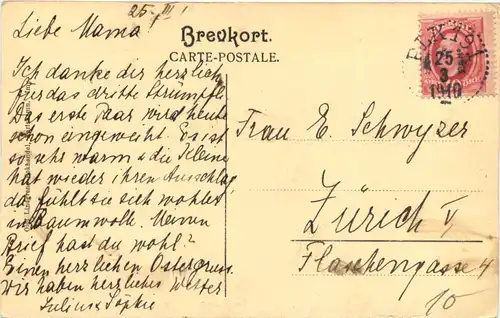 25. III
Liebe Mama!
Brevkort.
CARTE-POSTALE.
Ich danke dir herzlich
für das dritte Strümpfli.
Das erste Paar wird heute
schon eingeweiht. Es ist
so sehr warm & die Kleine
hat wieder ihren Ausschlag
da fühlt sie sich wohler
in Baumwolle. Meinen
Brief hast du wohl?
Einen herzlichen Ostergruss.
Wir haben herrliches Wetter
Julius & Sophie
25
3
1910
Frau E. Schwyzer
Zürich V
Plattengasse 4
10